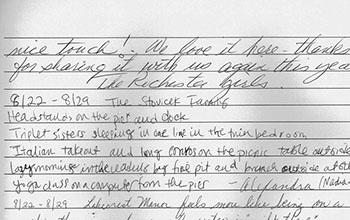 nice touch! We love it here - thanks
for sharing it with us again this yea
The Richester Girls.
8/22 - 8/29 The Stovicek Family
Headstands on the pier and dock
Triplet sisters sleeping in one line in the twin bedroom
Italian takeout and long convos on the picnic table outside
Lazy mornings in the by fire pit and brunch outside at
Yoga class on a computer from the pier - Alejandra
8/22 - 8/29 Manor feels more like being on a